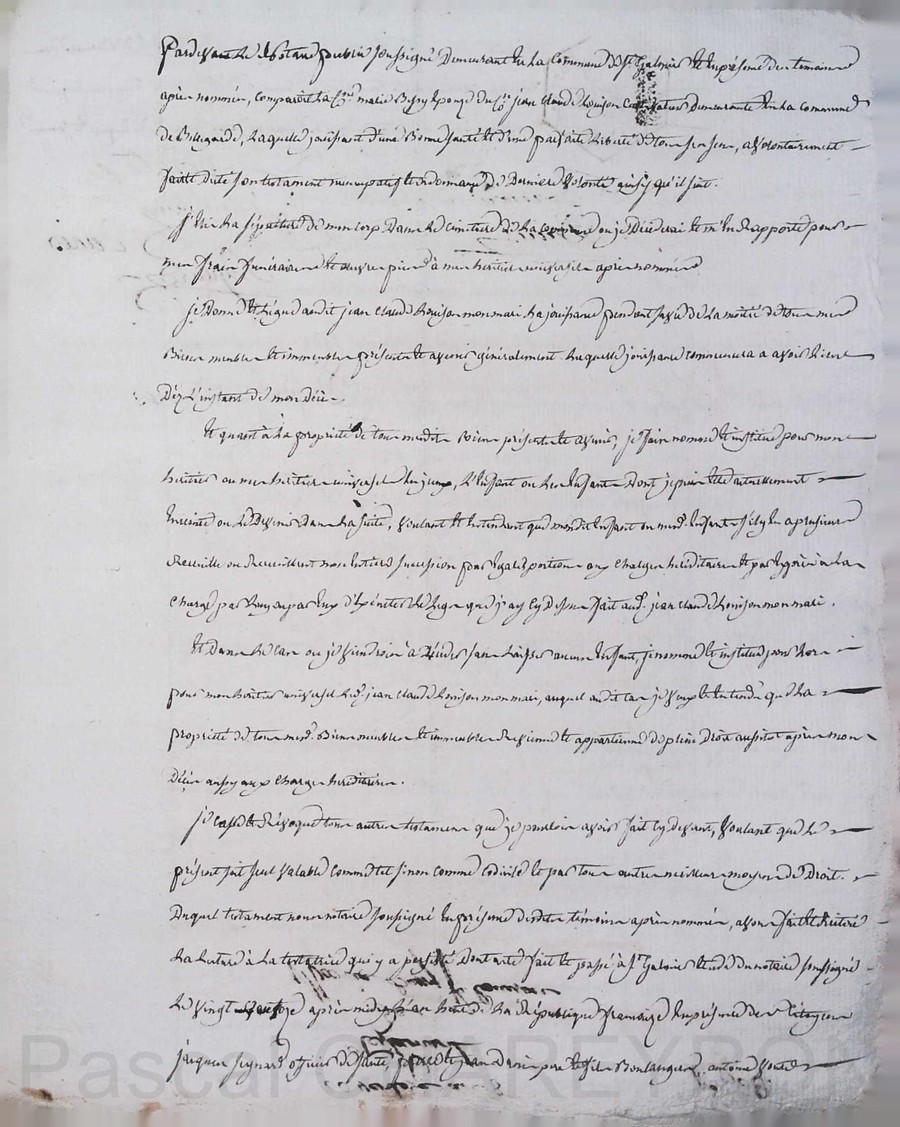 Pardevant le Notaire public soussigné Demeurant en La Commune de St Galmier et en présence des temoins
après nommés, comparait La Cne marie Bessy Epouze du Cen jean claude Louison demeurante en La commune
de Bellegarde, Laquelle jouissant d'une Bonne santé et d'une parfaite Liberté de tous ses sens, a volontairement
fait et dicté son testament nuncupatif et ordonnance de Derniere volonté ainsy qu'il suit.
j'Elis La sépulture de mon corps Dans Le cimetiere de La commune ou je Décéderai et m'en Rapporte pour
mes frais funéraires et œuvres pies à mon héritier universel après nommé
je Donne et Lègue audit jean claude Louison mon mari La jouissance pendant sa vie de La moitié de tous mes
Biens meubles et immeubles présents et avenir généralement Laquelle jouissance commencera a avoir Lieu
Dèz L'instant de mon décès.
Et quant à La propriété de tous mesdits Biens présents et avenir, je fais nomme et institue pour mon
héritier ou mes héritiers universels L'Enfant ou Les Enfants Dont je puis être actuellement
Enceinte ou Le Devenir Dans La suite, voulant et Entendant que mondit Enfant ou mesd. Enfants s'il y en a plusieurs
Recueille ou Recueillent mon Entiere succession par Egales portions aux charges héréditaires et par Exprès à La
charge par Lui ou par Eux d'Exécuter Le Legs que j'ay Cy Dessus fait aud. jean claude Louison mon mari.
Et Dans Le Cas ou je viendrois à Décéder sans Laisser aucun Enfant, je nomme et institue pour Lors
pour mon héritier universel Led. jean claude Louison mon mari, auquel audit cas je veux et Entends que La
propriété de tous mesd. Biens meubles et immeubles Revienne et appartienne de plein Droit aussitot après mon
Décès aussy aux charges héréditaires.
je casse et Révoque tous autres testaments que je pourrois avoir fait Cy devant, voulant que Le
présent soit seul valable comme tel sinon comme codicile et par tous autres meilleurs moyens de Droit.
Duquel testament nous notaire soussigné En présence desdits témoins après nommés, avons fait et Réitéré
La Lecture à La testatrice qui y a persisté Dont acte fait et passé à St Galmier Etude du notaire soussigné
Le vingt après midy L'an huit de La République française En présence des Citoyens
jacques officier de santé, père et fils Boulangers, antoine